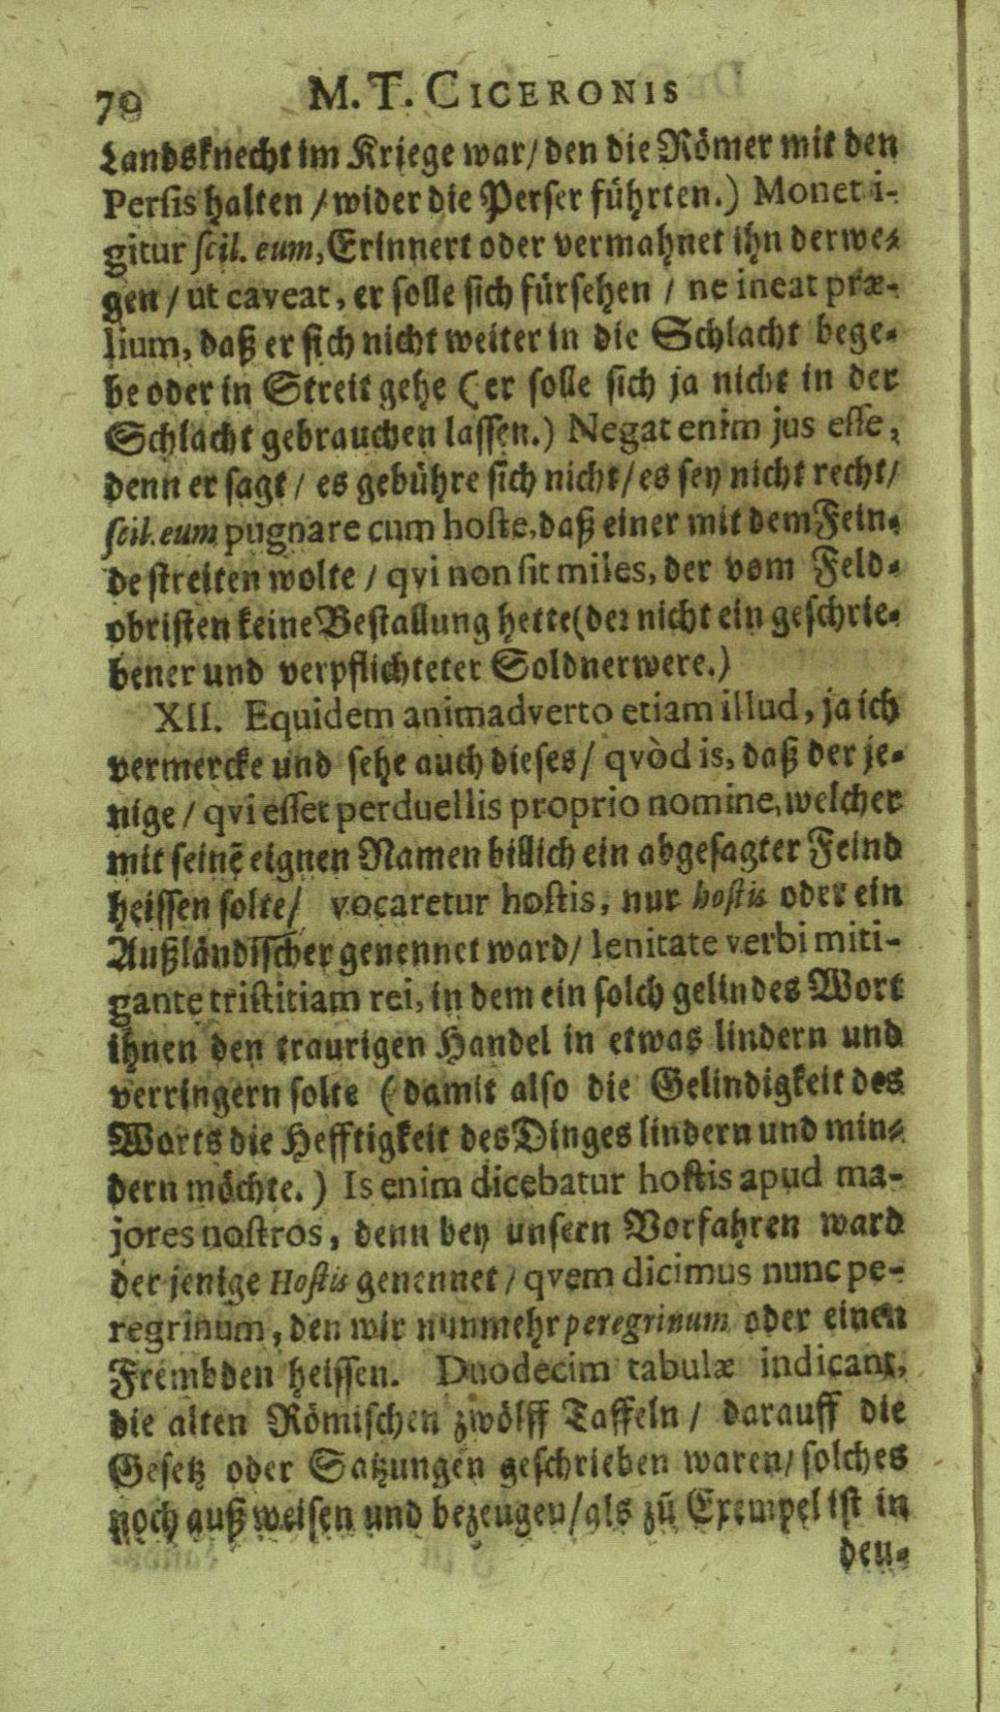 70 M. T. CICERONIS
Landsknecht im Kriege war/ den die Römer mit den
Persis halten / wider die Perser führten.) Monet i-
gitur scil. eum, Erinnert oder vermahnet ihn derwe-
gen / ut caveat, er solle sich fürsehen / ne ineat præ-
lium, daß er sich nicht weiter in die Schlacht bege-
be oder in Streit gehe (er solle sich ja nicht in der
Schlacht gebrauchen lassen.) Negat enim jus esse,
denn er sagt / es gebühre sich nicht/ es sey nicht recht/
scil. eum pugnare cum hoste, daß einer mit dem Fein-
de streiten wolte / qvi non sit miles, der vom Feld-
obristen keine Bestallung hette (der nicht ein geschrie-
bener und verpflichteter Soldner were.)
XII. Equidem animadverto etiam illud, ja ich
vermercke und sehe auch dieses/ qvòd is, daß der je-
nige / qvi esset perduellis proprio nomine, welcher
mit seinē eignen Namen billich ein abgesagter Feind
heissen solte/ vocaretur hostis, nur hostis oder ein
Außländischer genennet ward/ lenitate verbi miti-
gante tristitiam rei, in dem ein solch gelindes Wort
ihnen den traurigen Handel in etwas lindern und
verringern solte (damit also die Gelindigkeit des
Worts die Hefftigkeit des Dinges lindern und min-
dern möchte.) Is enim dicebatur hostis apud ma-
jores nostros, denn bey unsern Vorfahren ward
der jenige Hostis genennet / qvem dicimus nunc pe-
regrinum, den wir nunmehr peregrinum oder einen
Frembden heissen. Duodecim tabulæ indicant,
die alten Römischen zwölff Taffeln / darauff die
Gesetz oder Satzungen geschrieben waren/ solches
noch außweisen und bezeugen/ als zū Exempel ist in
den-